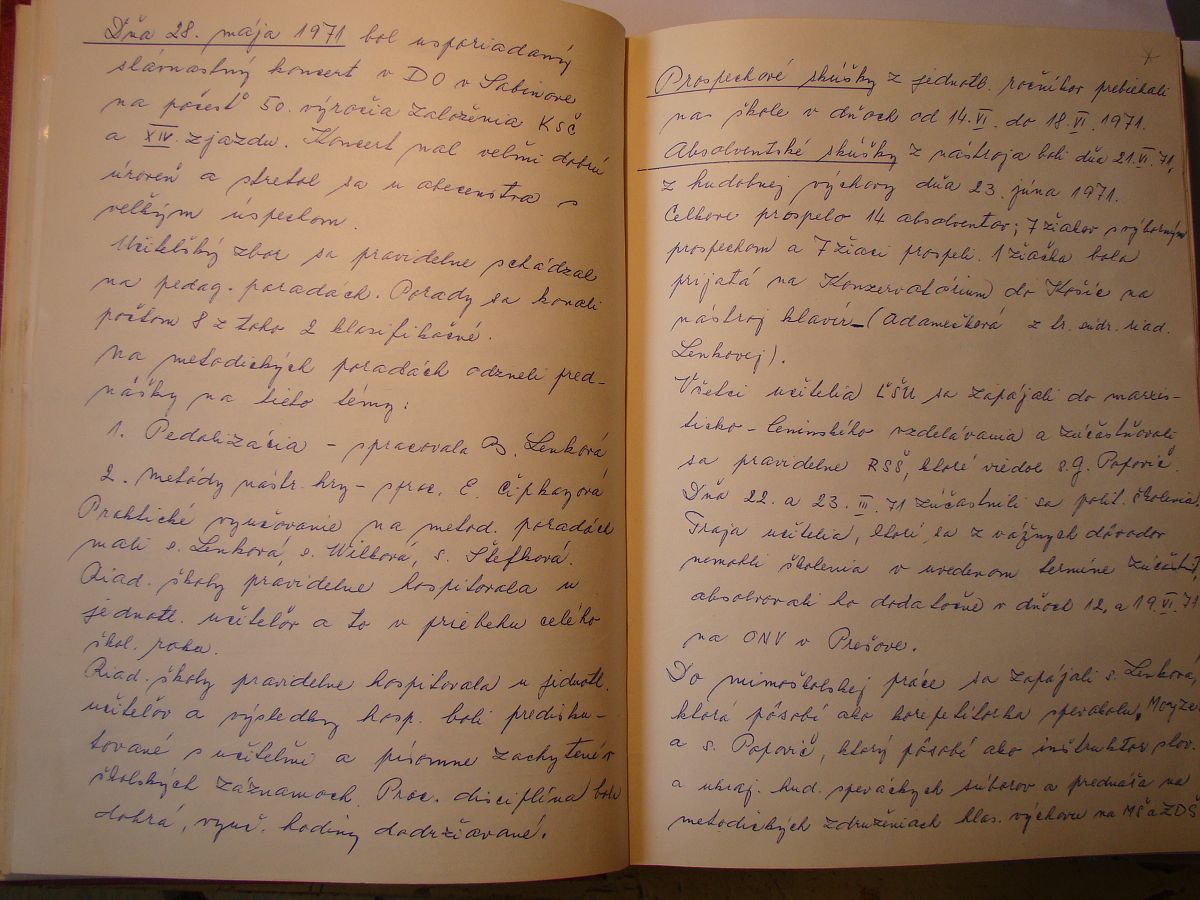 Dňa 28. mája 1971 bol usporiadaný
slávnostný koncert v DO v Sabinove
na počesť 50. výročia založenia KSČ
a XIV. zjazdu. Koncert mal veľmi dobrú
úroveň a stretol sa u obecenstva s
veľkým úspechom.
Učiteľský zbor sa pravidelne schádzal
na pedag. poradách. Porady sa konali
počtom 8 z toho 2 klasifikačné.
Na metodických poradách odzneli pred-
nášky na tieto témy:
1. Pedalizácia - spracovala B. Lenková
2. Metódy nástr. hry - sprac. E. Čipkayová
Praktické vyučovanie na metod. poradách
mali s. Lenková, s. Wilková, s. Štefková.
Riad. školy pravidelne hospitovala u
jednotl. učiteľov a to v priebehu celého
škol. roku.
Riad. školy pravidelne hospitovala u jednotl.
učiteľov a výsledky hosp. boli predisku-
tované s učiteľmi a písomne zachytené v
školských záznamoch. Prac. disciplína bola
dobrá, vyuč. hodiny dodržiavané.
7
Prospechové skúšky z jednotl. ročníkov prebiehali
na škole v dňoch od 14. VI. do 18. VI. 1971.
Absolventské skúšky z nástroja boli dňa 21. VI. 71,
z hudobnej výchovy dňa 23. júna 1971.
Celkove prospelo 14 absolventov; 7 žiakov s výborným
prospechom a 7 žiaci prospeli. 1 žiačka bola
prijatá na Konzervatórium do Košíc na
nástroj klavír - (Adamečková z tr. súdr. riad.
Lenkovej).
Všetci učitelia ĽŠU sa zapájali do marxis-
ticko-leninského vzdelávania a zúčastňovali
sa pravidelne RSŠ, ktoré viedol s. G. Popovič.
Dňa 22. a 23. III. 71 zúčastnili sa polit. školenia.
Traja učitelia, ktorí sa z vážnych dôvodov
nemohli školenia v uvedenom termíne zúčastniť,
absolvovali ho dodatočne v dňoch 12. a 19. VI. 71
na ONV v Prešove.
Do mimoškolskej práce sa zapájali s. Lenková,
ktorá pôsobí ako korepetítorka spevokolu Moyzes
a s. Popovič, ktorý pôsobí ako inštruktor slov.
a ukraj. hud. speváckych súborov a prednáša na
metodických združeniach hlas. výchovu na MŠ a ZDŠ